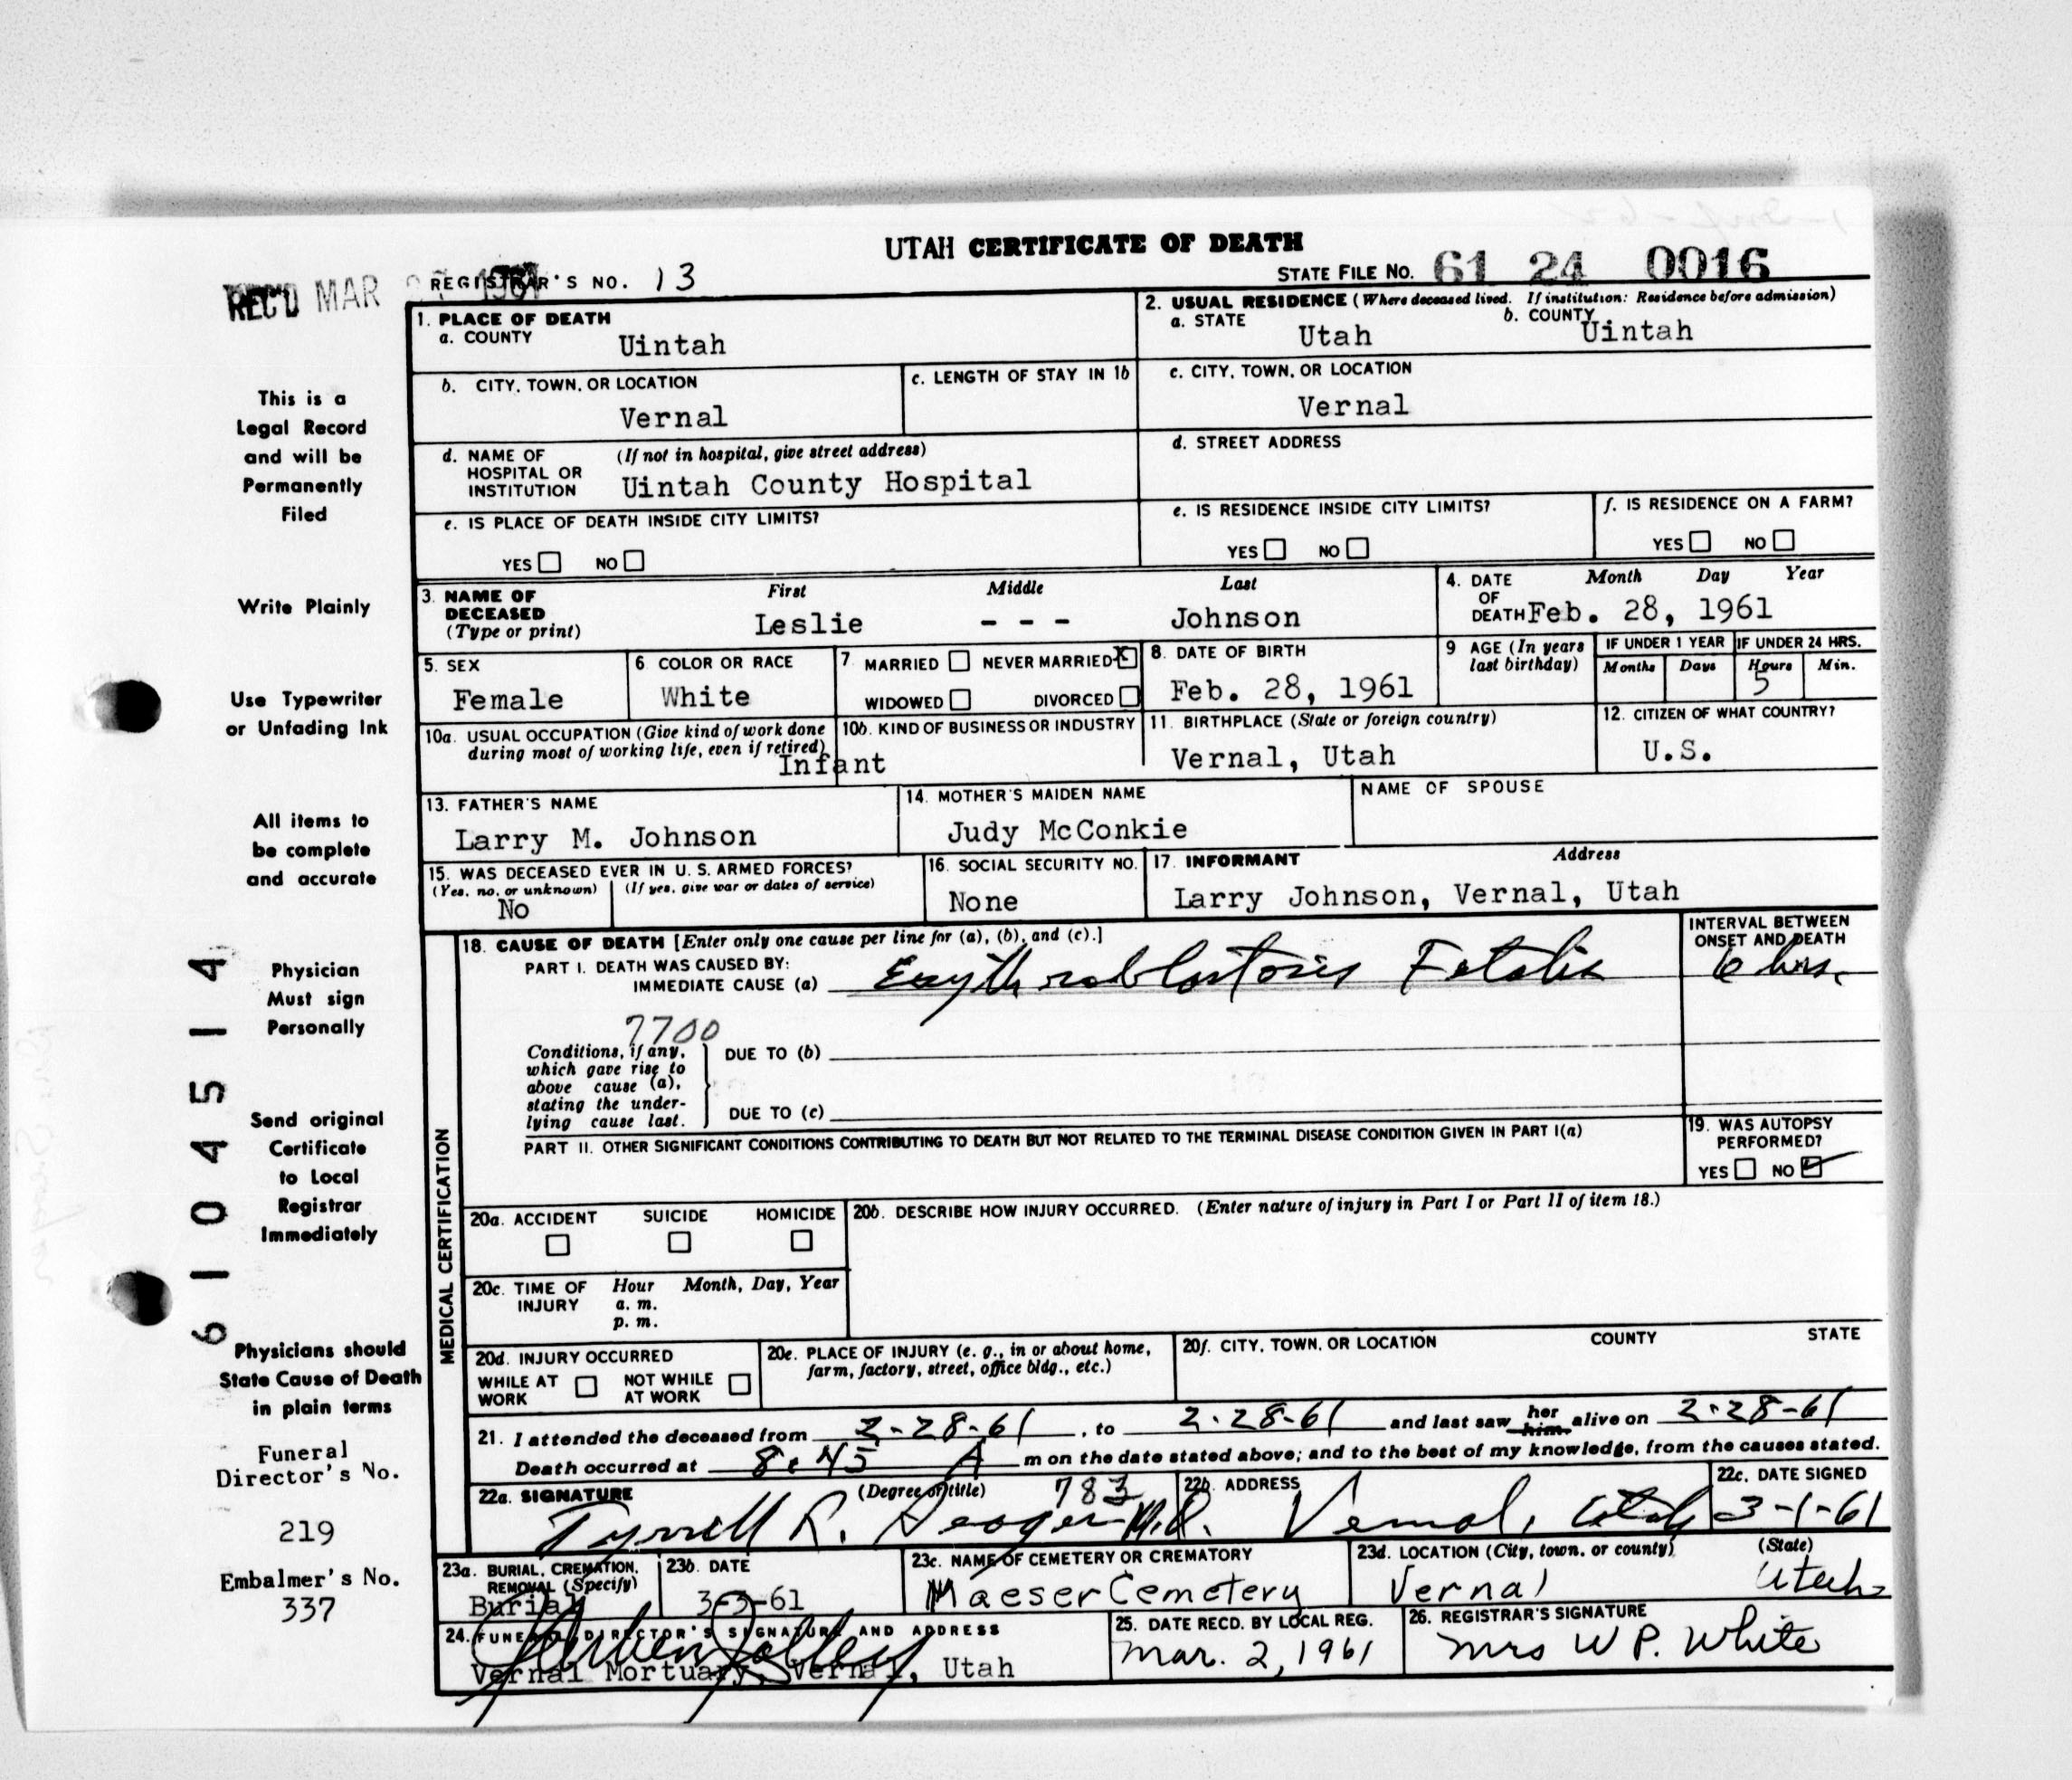 UTAH CERTIFICATE OF DEATH
REC'D MAR 1961
REGISTRAR'S NO. 13
STATE FILE NO. 61 24 0016
1. PLACE OF DEATH
a. COUNTY
Uintah
2. USUAL RESIDENCE (Where deceased lived. If institution: Residence before admission)
a. STATE
Utah
b. COUNTY
Uintah
b. CITY, TOWN, OR LOCATION
Vernal
c. LENGTH OF STAY IN 1b
c. CITY, TOWN, OR LOCATION
Vernal
d. NAME OF HOSPITAL OR INSTITUTION
(If not in hospital, give street address)
Uintah County Hospital
d. STREET ADDRESS
e. IS PLACE OF DEATH INSIDE CITY LIMITS?
YES NO
e. IS RESIDENCE INSIDE CITY LIMITS?
YES NO
f. IS RESIDENCE ON A FARM?
YES NO
3. NAME OF DECEASED
(Type or print)
First Middle Last
Leslie - - - Johnson
4. DATE OF DEATH
Month Day Year
Feb. 28, 1961
5. SEX
Female
6. COLOR OR RACE
White
7. MARRIED NEVER MARRIED X
WIDOWED DIVORCED
8. DATE OF BIRTH
Feb. 28, 1961
9. AGE (In years last birthday)
IF UNDER 1 YEAR
Months Days
IF UNDER 24 HRS.
Hours Min.
5
10a. USUAL OCCUPATION (Give kind of work done during most of working life, even if retired)
Infant
10b. KIND OF BUSINESS OR INDUSTRY
11. BIRTHPLACE (State or foreign country)
Vernal, Utah
12. CITIZEN OF WHAT COUNTRY?
U.S.
13. FATHER'S NAME
Larry M. Johnson
14. MOTHER'S MAIDEN NAME
Judy McConkie
NAME OF SPOUSE
15. WAS DECEASED EVER IN U. S. ARMED FORCES?
(Yes, no, or unknown) (If yes, give war or dates of service)
No
16. SOCIAL SECURITY NO.
None
17. INFORMANT Address
Larry Johnson, Vernal, Utah
MEDICAL CERTIFICATION
18. CAUSE OF DEATH [Enter only one cause per line for (a), (b), and (c).]
PART I. DEATH WAS CAUSED BY:
IMMEDIATE CAUSE (a) Erythroblastosis Fetalis
INTERVAL BETWEEN ONSET AND DEATH
6 hrs.
7700
Conditions, if any, which gave rise to above cause (a), stating the underlying cause last.
DUE TO (b)
DUE TO (c)
PART II. OTHER SIGNIFICANT CONDITIONS CONTRIBUTING TO DEATH BUT NOT RELATED TO THE TERMINAL DISEASE CONDITION GIVEN IN PART I(a)
19. WAS AUTOPSY PERFORMED?
YES NO
20a. ACCIDENT SUICIDE HOMICIDE
20b. DESCRIBE HOW INJURY OCCURRED. (Enter nature of injury in Part I or Part II of item 18.)
20c. TIME OF INJURY
Hour Month, Day, Year
a. m.
p. m.
20d. INJURY OCCURRED
WHILE AT WORK NOT WHILE AT WORK
20e. PLACE OF INJURY (e. g., in or about home, farm, factory, street, office bldg., etc.)
20f. CITY, TOWN, OR LOCATION COUNTY STATE
21. I attended the deceased from 2-28-61, to 2-28-61 and last saw her him alive on 2-28-61
Death occurred at 8:45 A m on the date stated above; and to the best of my knowledge, from the causes stated.
22a. SIGNATURE (Degree or title) 783
Tyrrell R. Seager M.D.
22b. ADDRESS
Vernal, Utah
22c. DATE SIGNED
3-1-61
23a. BURIAL, CREMATION, REMOVAL (Specify)
Burial
23b. DATE
3-3-61
23c. NAME OF CEMETERY OR CREMATORY
Maeser Cemetery
23d. LOCATION (City, town, or county) (State)
Vernal Utah
24. FUNERAL DIRECTOR'S SIGNATURE AND ADDRESS
Vernal Mortuary, Vernal, Utah
25. DATE RECD. BY LOCAL REG.
Mar. 2, 1961
26. REGISTRAR'S SIGNATURE
Mrs W P. White
This is a
Legal Record
and will be
Permanently
Filed
Write Plainly
Use Typewriter
or Unfading Ink
All items to
be complete
and accurate
Physician
Must sign
Personally
Send original
Certificate
to Local
Registrar
Immediately
Physicians should
State Cause of Death
in plain terms
Funeral
Director's No.
219
Embalmer's No.
337
61 04514